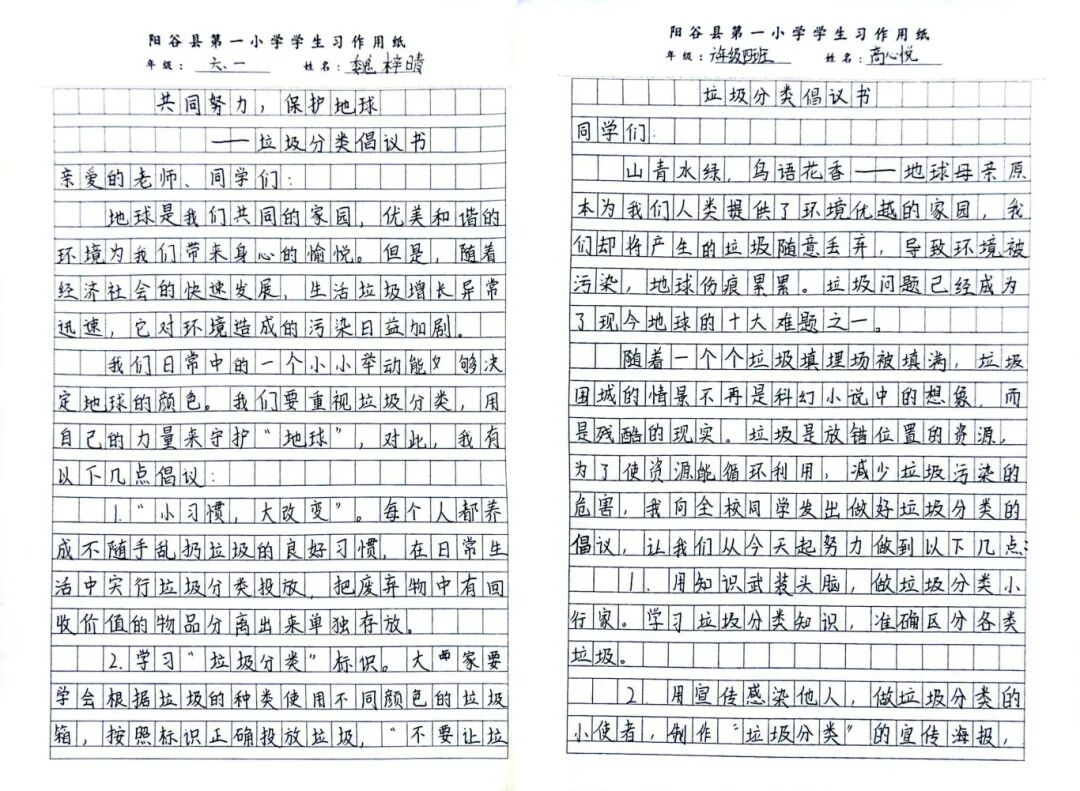 阳谷县第一小学学生习作用纸
年级：六、一 姓名：魏梓晴
共同努力，保护地球
——垃圾分类倡议书
亲爱的老师、同学们：
地球是我们共同的家园，优美和谐的
环境为我们带来身心的愉悦。但是，随着
经济社会的快速发展，生活垃圾增长异常
迅速，它对环境造成的污染日益加剧。
我们日常中的一个小小举动能够决
定地球的颜色。我们要重视垃圾分类，用
自己的力量来守护“地球”，对此，我有
以下几点倡议：
1.“小习惯，大改变”。每个人都养
成不随手乱扔垃圾的良好习惯，在日常生
活中实行垃圾分类投放，把废弃物中有回
收价值的物品分离出来单独存放。
2.学习“垃圾分类”标识。大家要
学会根据垃圾的种类使用不同颜色的垃圾
箱，按照标识正确投放垃圾，“不要让垃
阳谷县第一小学学生习作用纸
年级：六年级四班 姓名：高心悦
垃圾分类倡议书
同学们：
山青水绿，鸟语花香——地球母亲原
本为我们人类提供了环境优越的家园，我
们却将产生的垃圾随意丢弃，导致环境被
污染，地球伤痕累累。垃圾问题已经成为
了现今地球的十大难题之一。
随着一个个垃圾填埋场被填满，垃圾
围城的情景不再是科幻小说中的想象，而
是残酷的现实。垃圾是放错位置的资源，
为了使资源能循环利用，减少垃圾污染的
危害，我向全校同学发出做好垃圾分类的
倡议，让我们从今天起努力做到以下几点：
1.用知识武装头脑，做垃圾分类小
行家。学习垃圾分类知识，准确区分各类
垃圾。
2.用宣传感染他人，做垃圾分类的
小使者，制作“垃圾分类”的宣传海报，